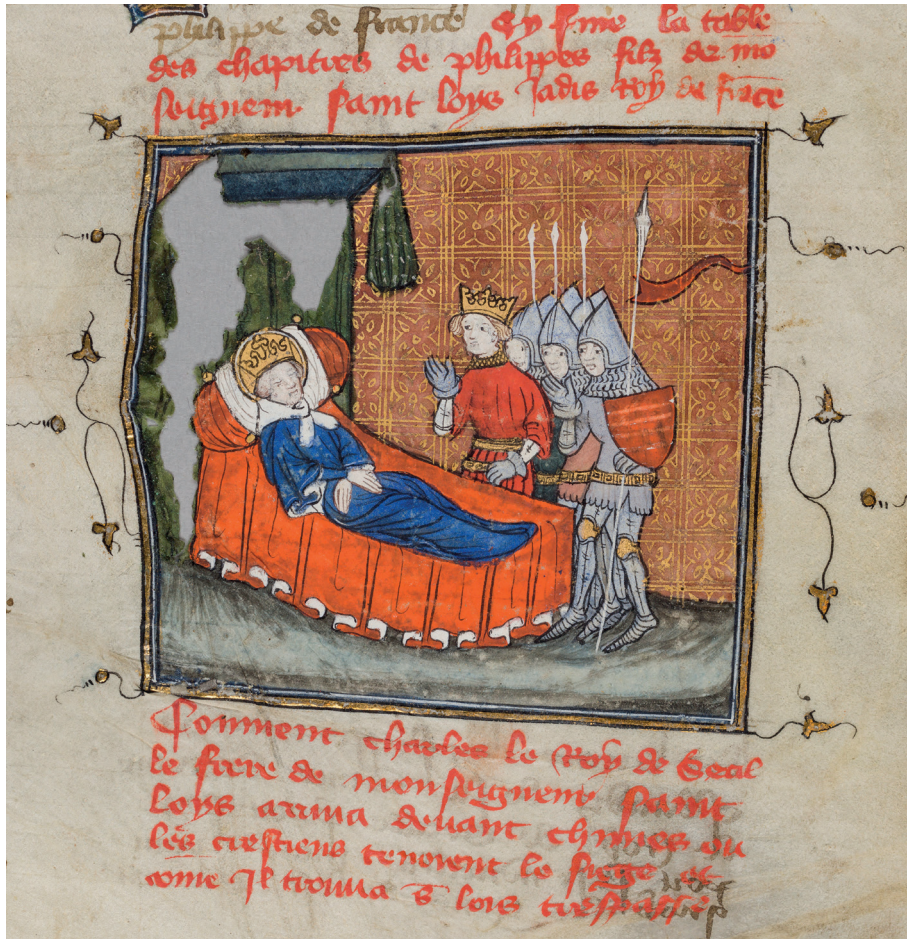 philippe de france Cy fine la table
des chapitres de philippes filz de mo
seigneur saint loys Jadis roy de frāce
Comment charles le Roy de Secil
le frere de monseigneur saint
loys arriva devant thunes ou
les crestiens tenoient le siege et
come Jl trouva s̄ lois trespasse